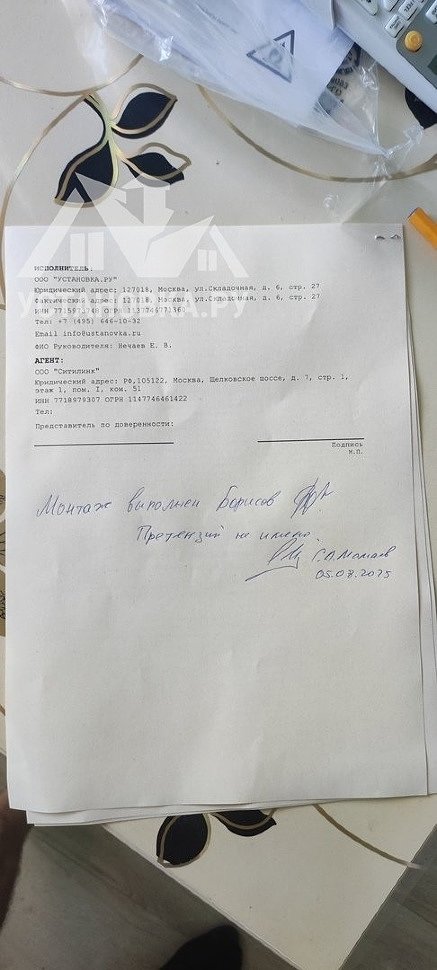 ИСПОЛНИТЕЛЬ:
ООО "УСТАНОВКА.РУ"
Юридический адрес: 127018, Москва, ул.Складочная, д. 6, стр. 27
Фактический адрес: 127018, Москва, ул.Складочная, д. 6, стр. 27
УСТАНОВКА.РУ
ИНН ОГРН
Тел: +7 (495) 646-10-32
Email info@ustanovka.ru
ФИО Руководителя: Нечаев Е. В.
АГЕНТ:
ООО "Ситилинк"
Юридический адрес: РФ,105122, Москва, Щелковское шоссе, д. 7, стр. 1,
этаж 1, пом. I, ком. 51
ИНН 7718979307 ОГРН 1147746461422
Тел:
Представитель по доверенности:
Подпись
М.П.
Монтаж выполнен Борисов
Претензий не имею.